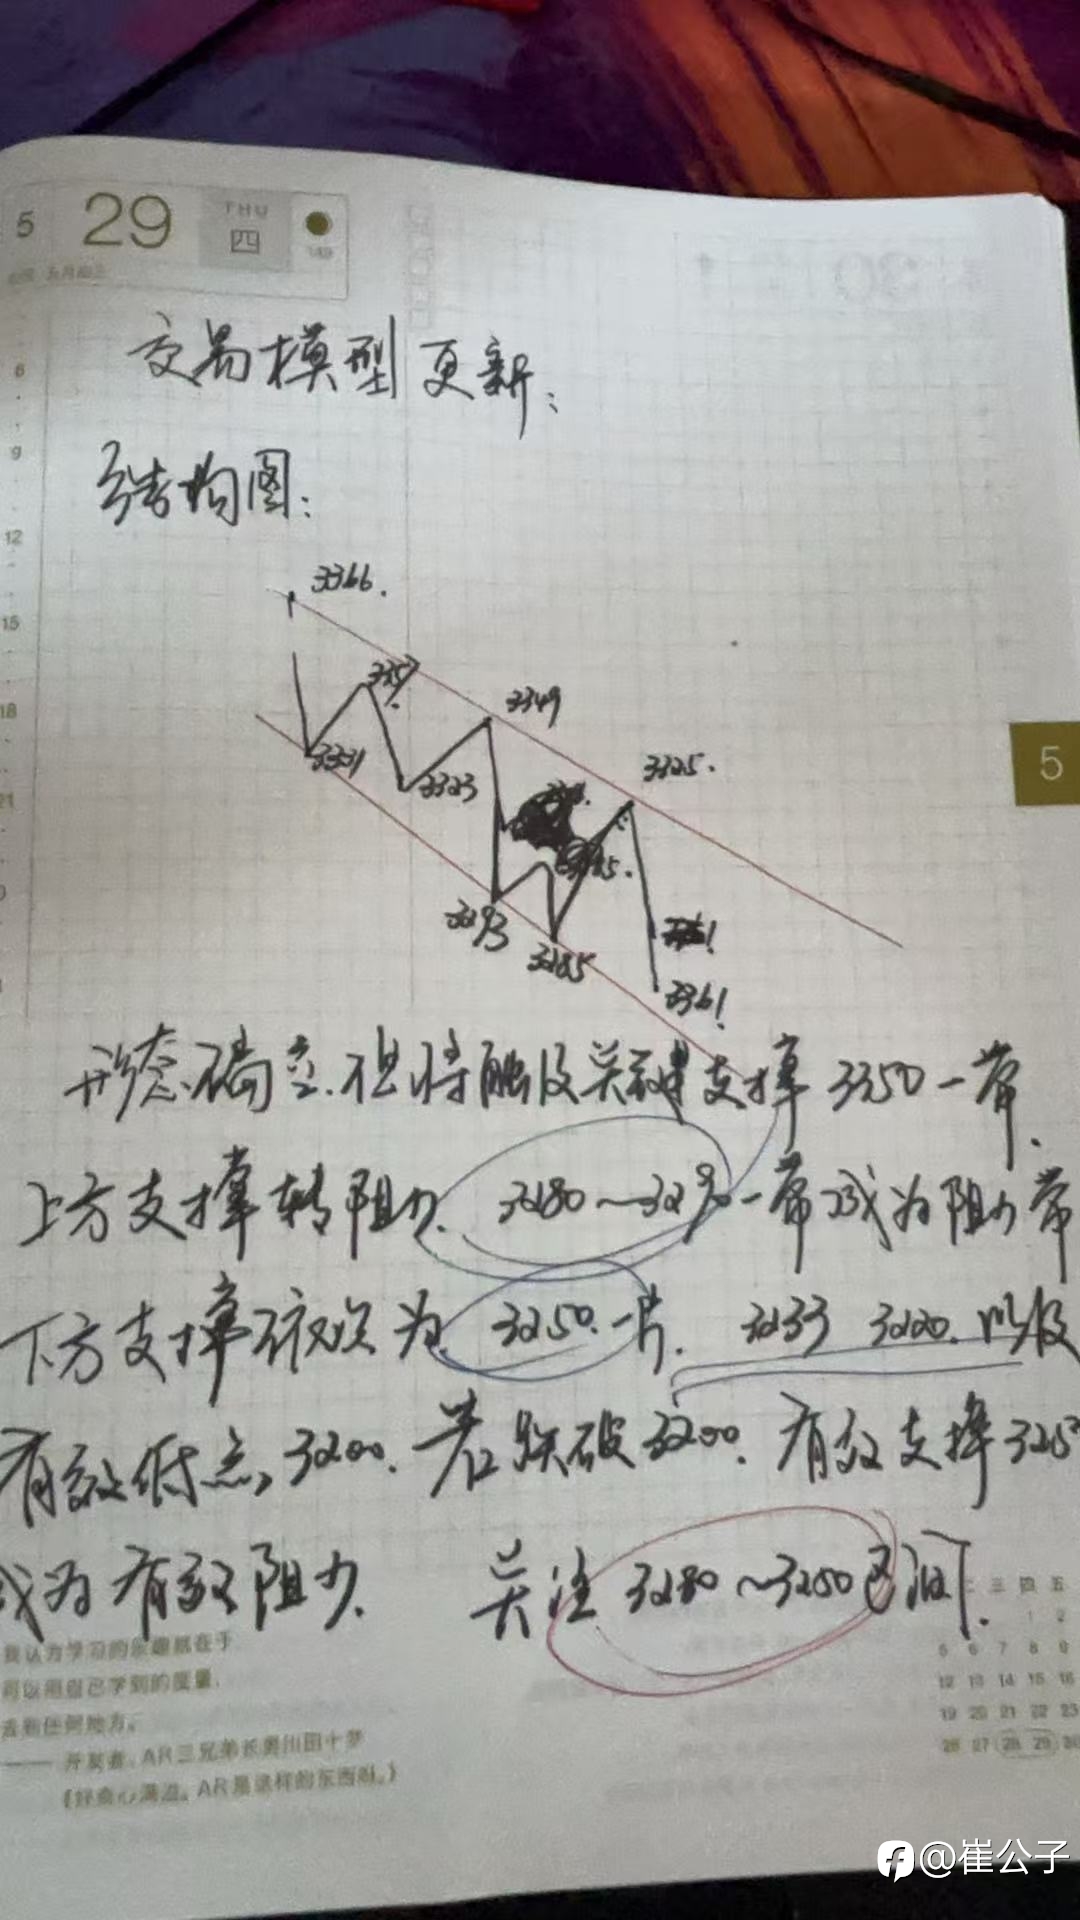 5 29 THU 四
交易模型更新：
结构图：
3366.
3357
3349
3331
3323
3325.
3293
3285
3361!
形态确立.但将触及关键支撑3350一带.
上方支撑转阻力. 3280~3290一带成为阻力带
下方支撑依次为 3250.一片. 3233 3220.以及
有效低点,3200.若跌破3200.有效支撑325
成为有效阻力. 关注3280~3250区间.
5
我认为学习的乐趣就在于
可以用自己学到的度量,
去到任何地方。
—— 开发者、AR三兄弟长奥川田十梦
《好奇心满溢。AR是这样的东西啊。》
二 三 四 五
1 2
5 6 7 8 9
12 13 14 15 16
19 20 21 22 23
26 27 28 29 30
@崔公子